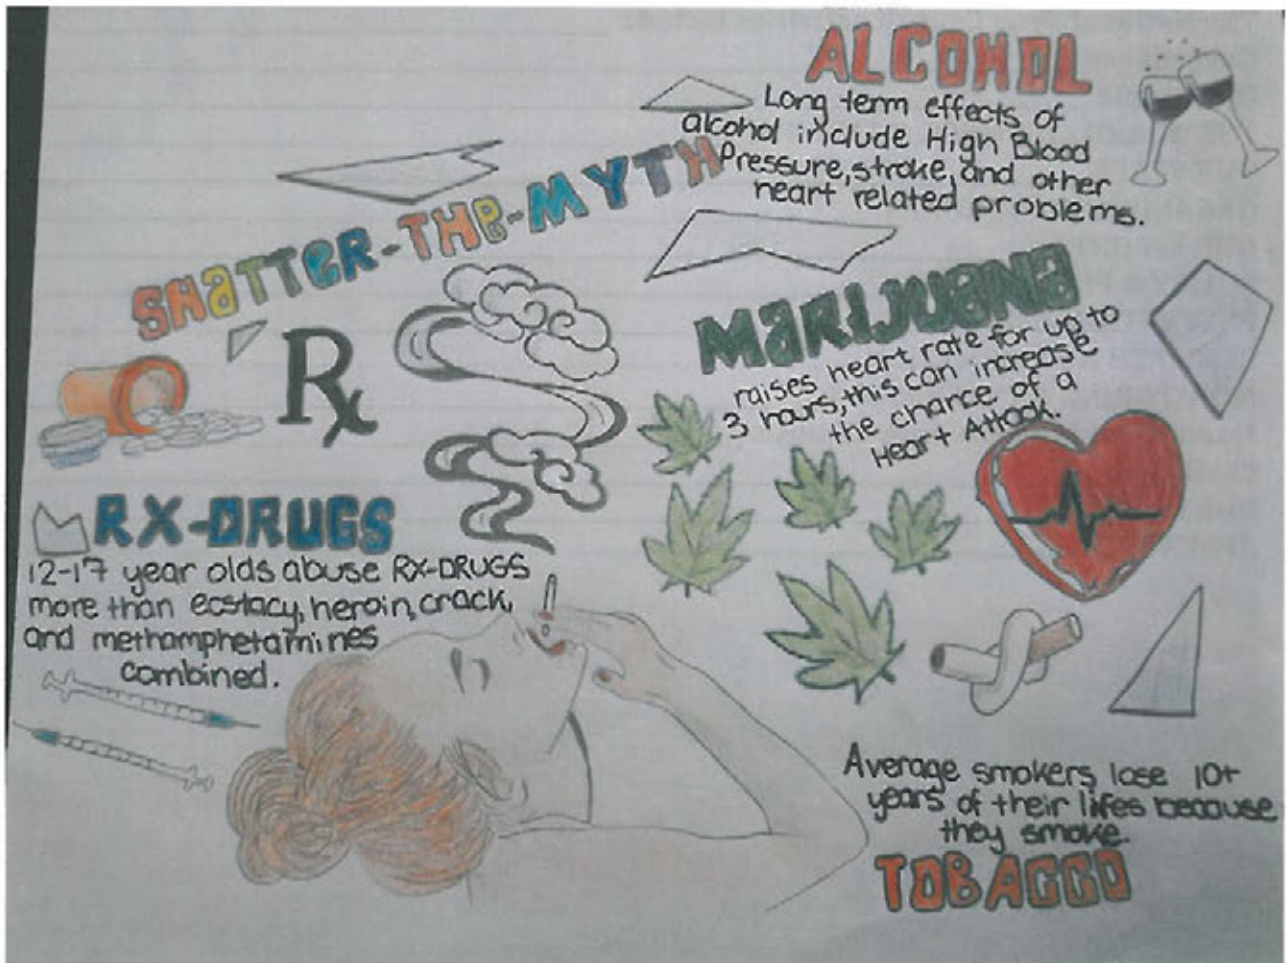 ALCOHOL
Long term effects of
alcohol include High Blood
Pressure, stroke, and other
heart related problems.
SHaTTeR-THE-MYTH
MaRiJuaNa
raises heart rate for up to
3 hours, this can increase
the chance of a
Heart Attack.
Rx
RX-DRUGS
12-17 year olds abuse RX-DRUGS
more than ecstacy, heroin, crack,
and methamphetamines
combined.
Average smokers lose 10+
years of their lifes because
they smoke.
TOBACCO